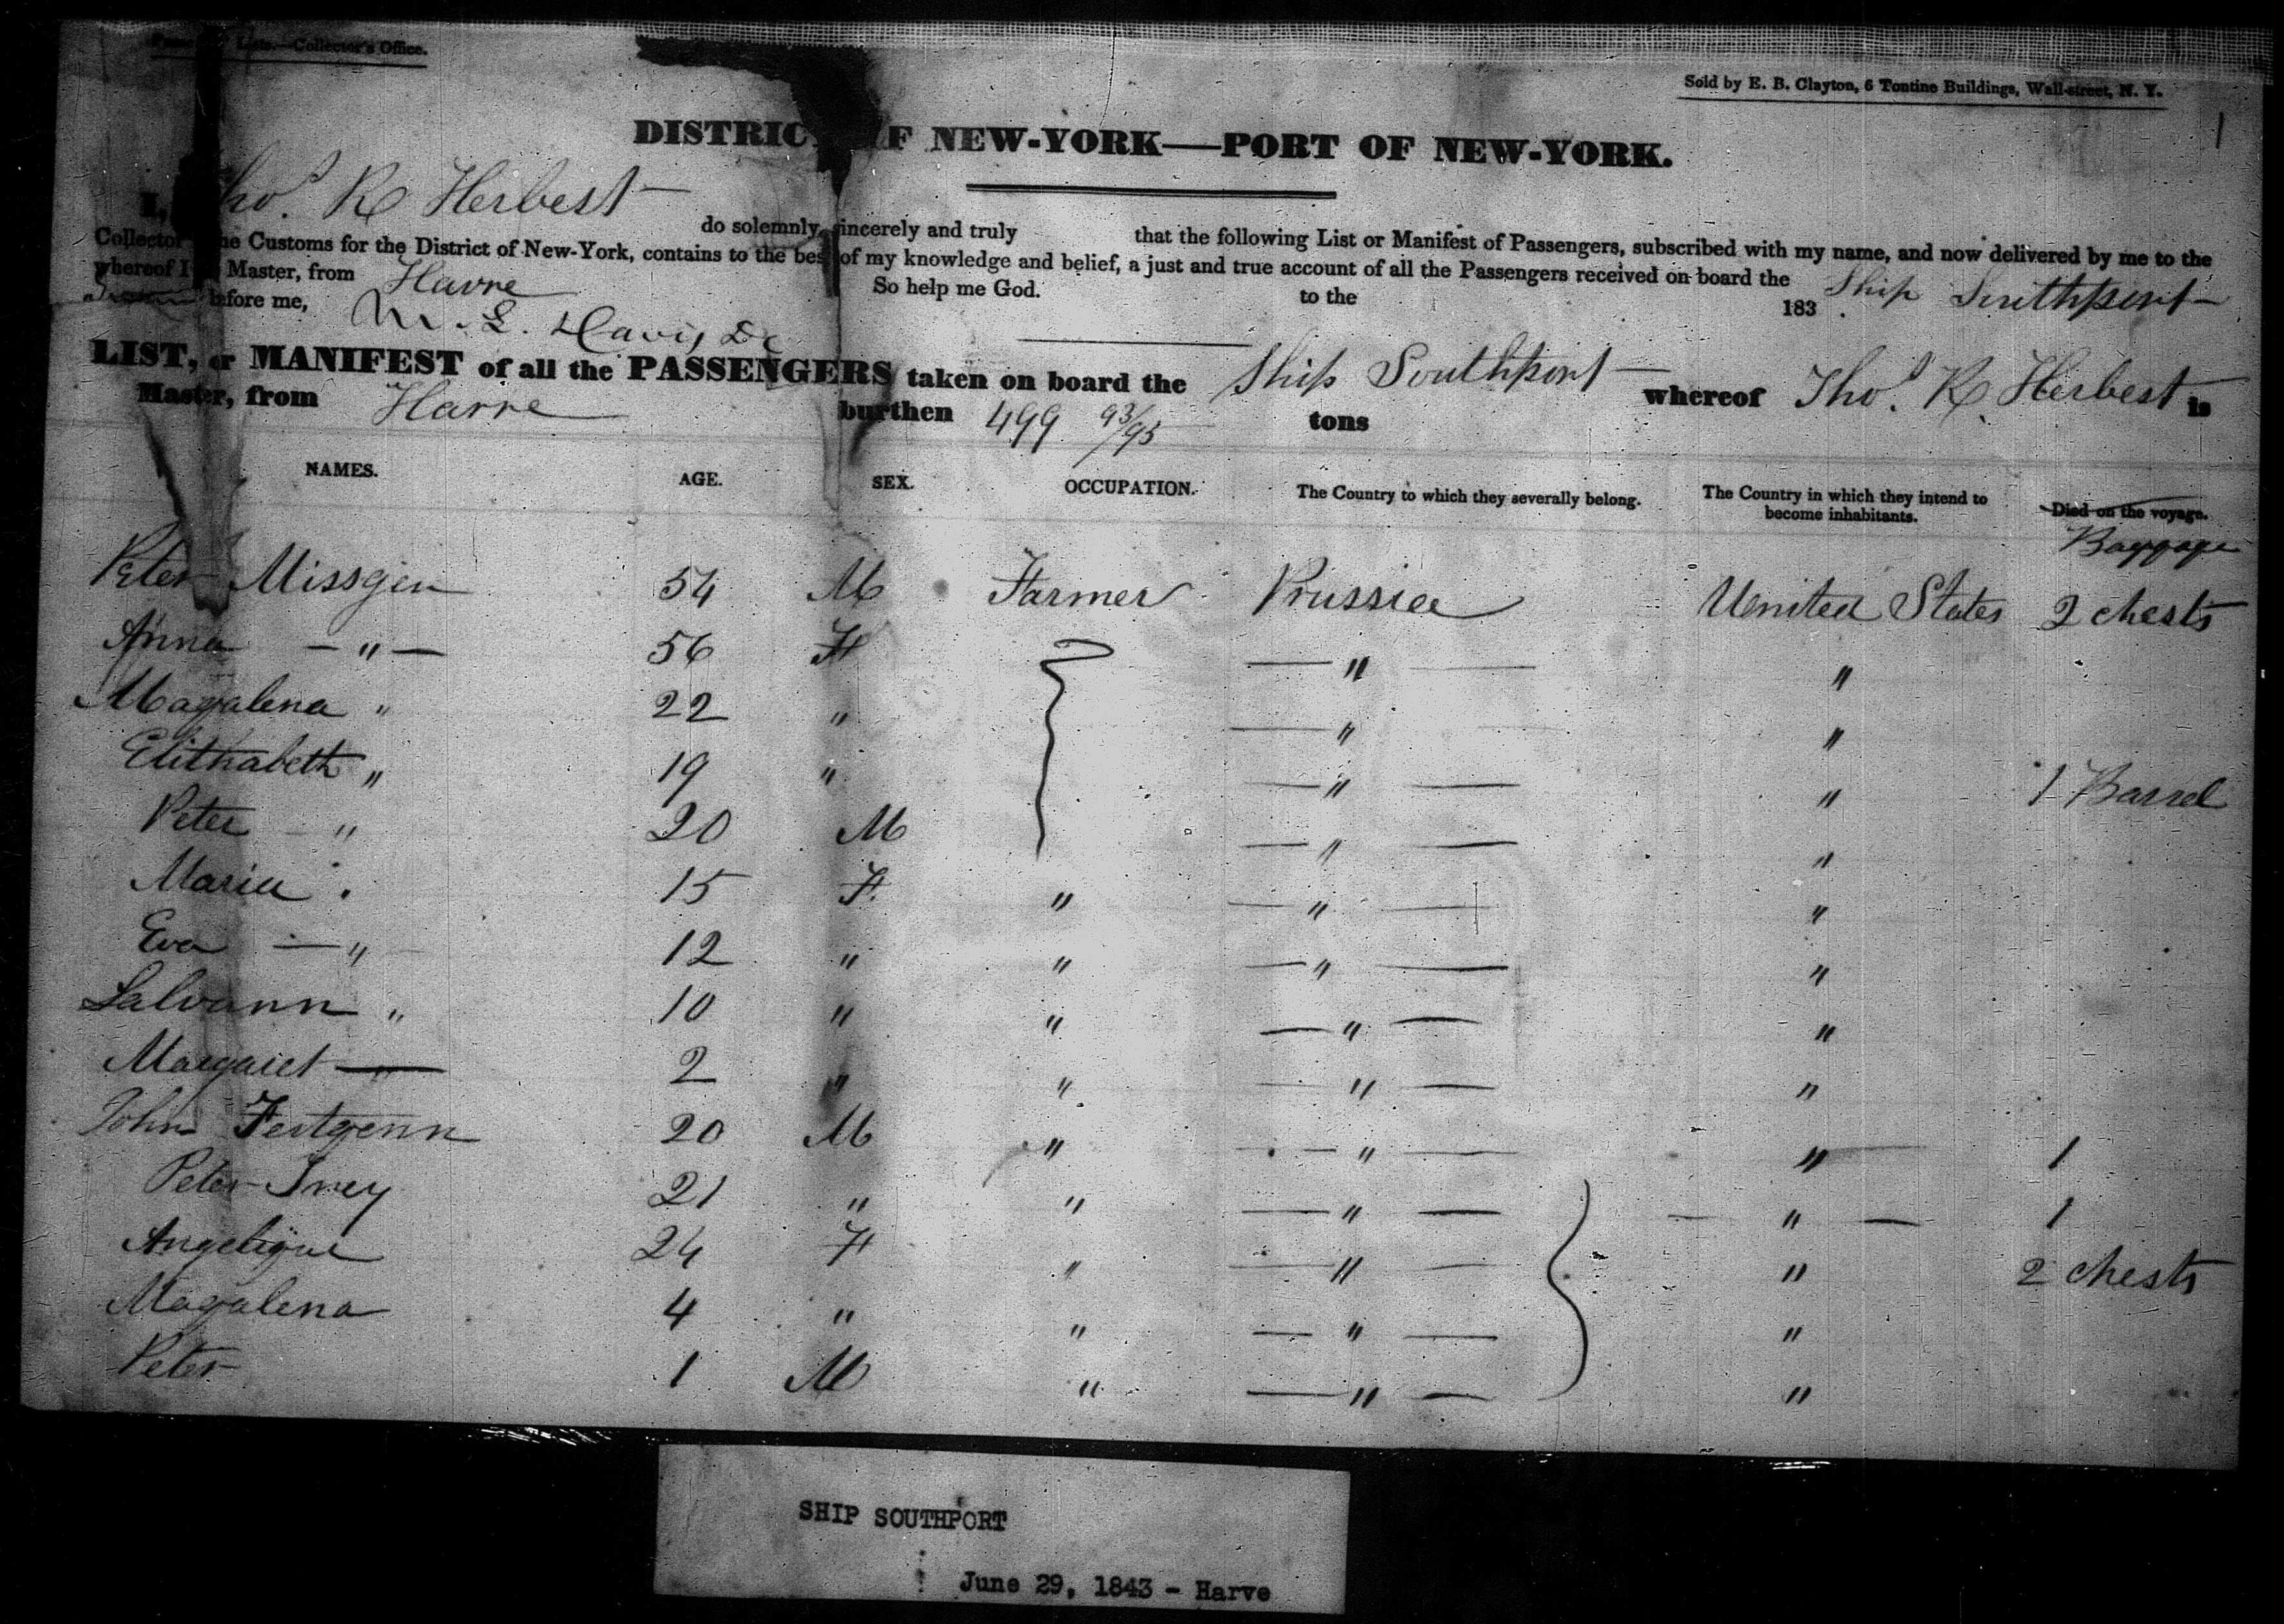 Lists.—Collector's Office.
Sold by E. B. Clayton, 6 Tontine Buildings, Wall-street, N. Y.
1
DISTRIC F NEW-YORK—PORT OF NEW-YORK.
I, Tho.s R Herbest do solemnly, sincerely and truly that the following List or Manifest of Passengers, subscribed with my name, and now delivered by me to the
Collector the Customs for the District of New-York, contains to the best of my knowledge and belief, a just and true account of all the Passengers received on board the Ship Southport
whereof I Master, from Havre So help me God. to the 183 .
before me, M. L. Davis
LIST, or MANIFEST of all the PASSENGERS taken on board the Ship Southport whereof Tho.s R. Herbest is
Master, from Havre burthen 499 93/95 tons
NAMES. AGE. SEX. OCCUPATION. The Country to which they severally belong. The Country in which they intend to become inhabitants. Died on the voyage.
Baggage
Peter Missgen 54 M Farmer Prussia United States 2 chests
Anna — " — 56 F — " — "
Magalena " 22 " — " "
Elithabeth " 19 " — " — " 1 Barrel
Peter — " 20 M — " — "
Maria " 15 F. " — " — "
Eva — " 12 " " — " — "
Salvann " 10 " " — " — "
Margaret — " 2 " " — " — "
John Feitgenn 20 M " — " — " 1
Peter Irey 21 " " — " — — " — 1
Angelique 24 F " — " — " 2 chests
Magalena 4 " " — " — "
Peter 1 M " — " — "
SHIP SOUTHPORT
June 29, 1843 - Harve